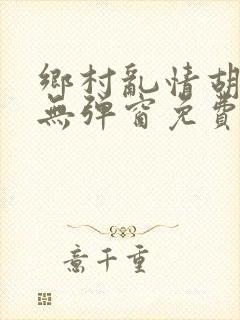 鄉村亂情胡
無彈窗免費
意千重